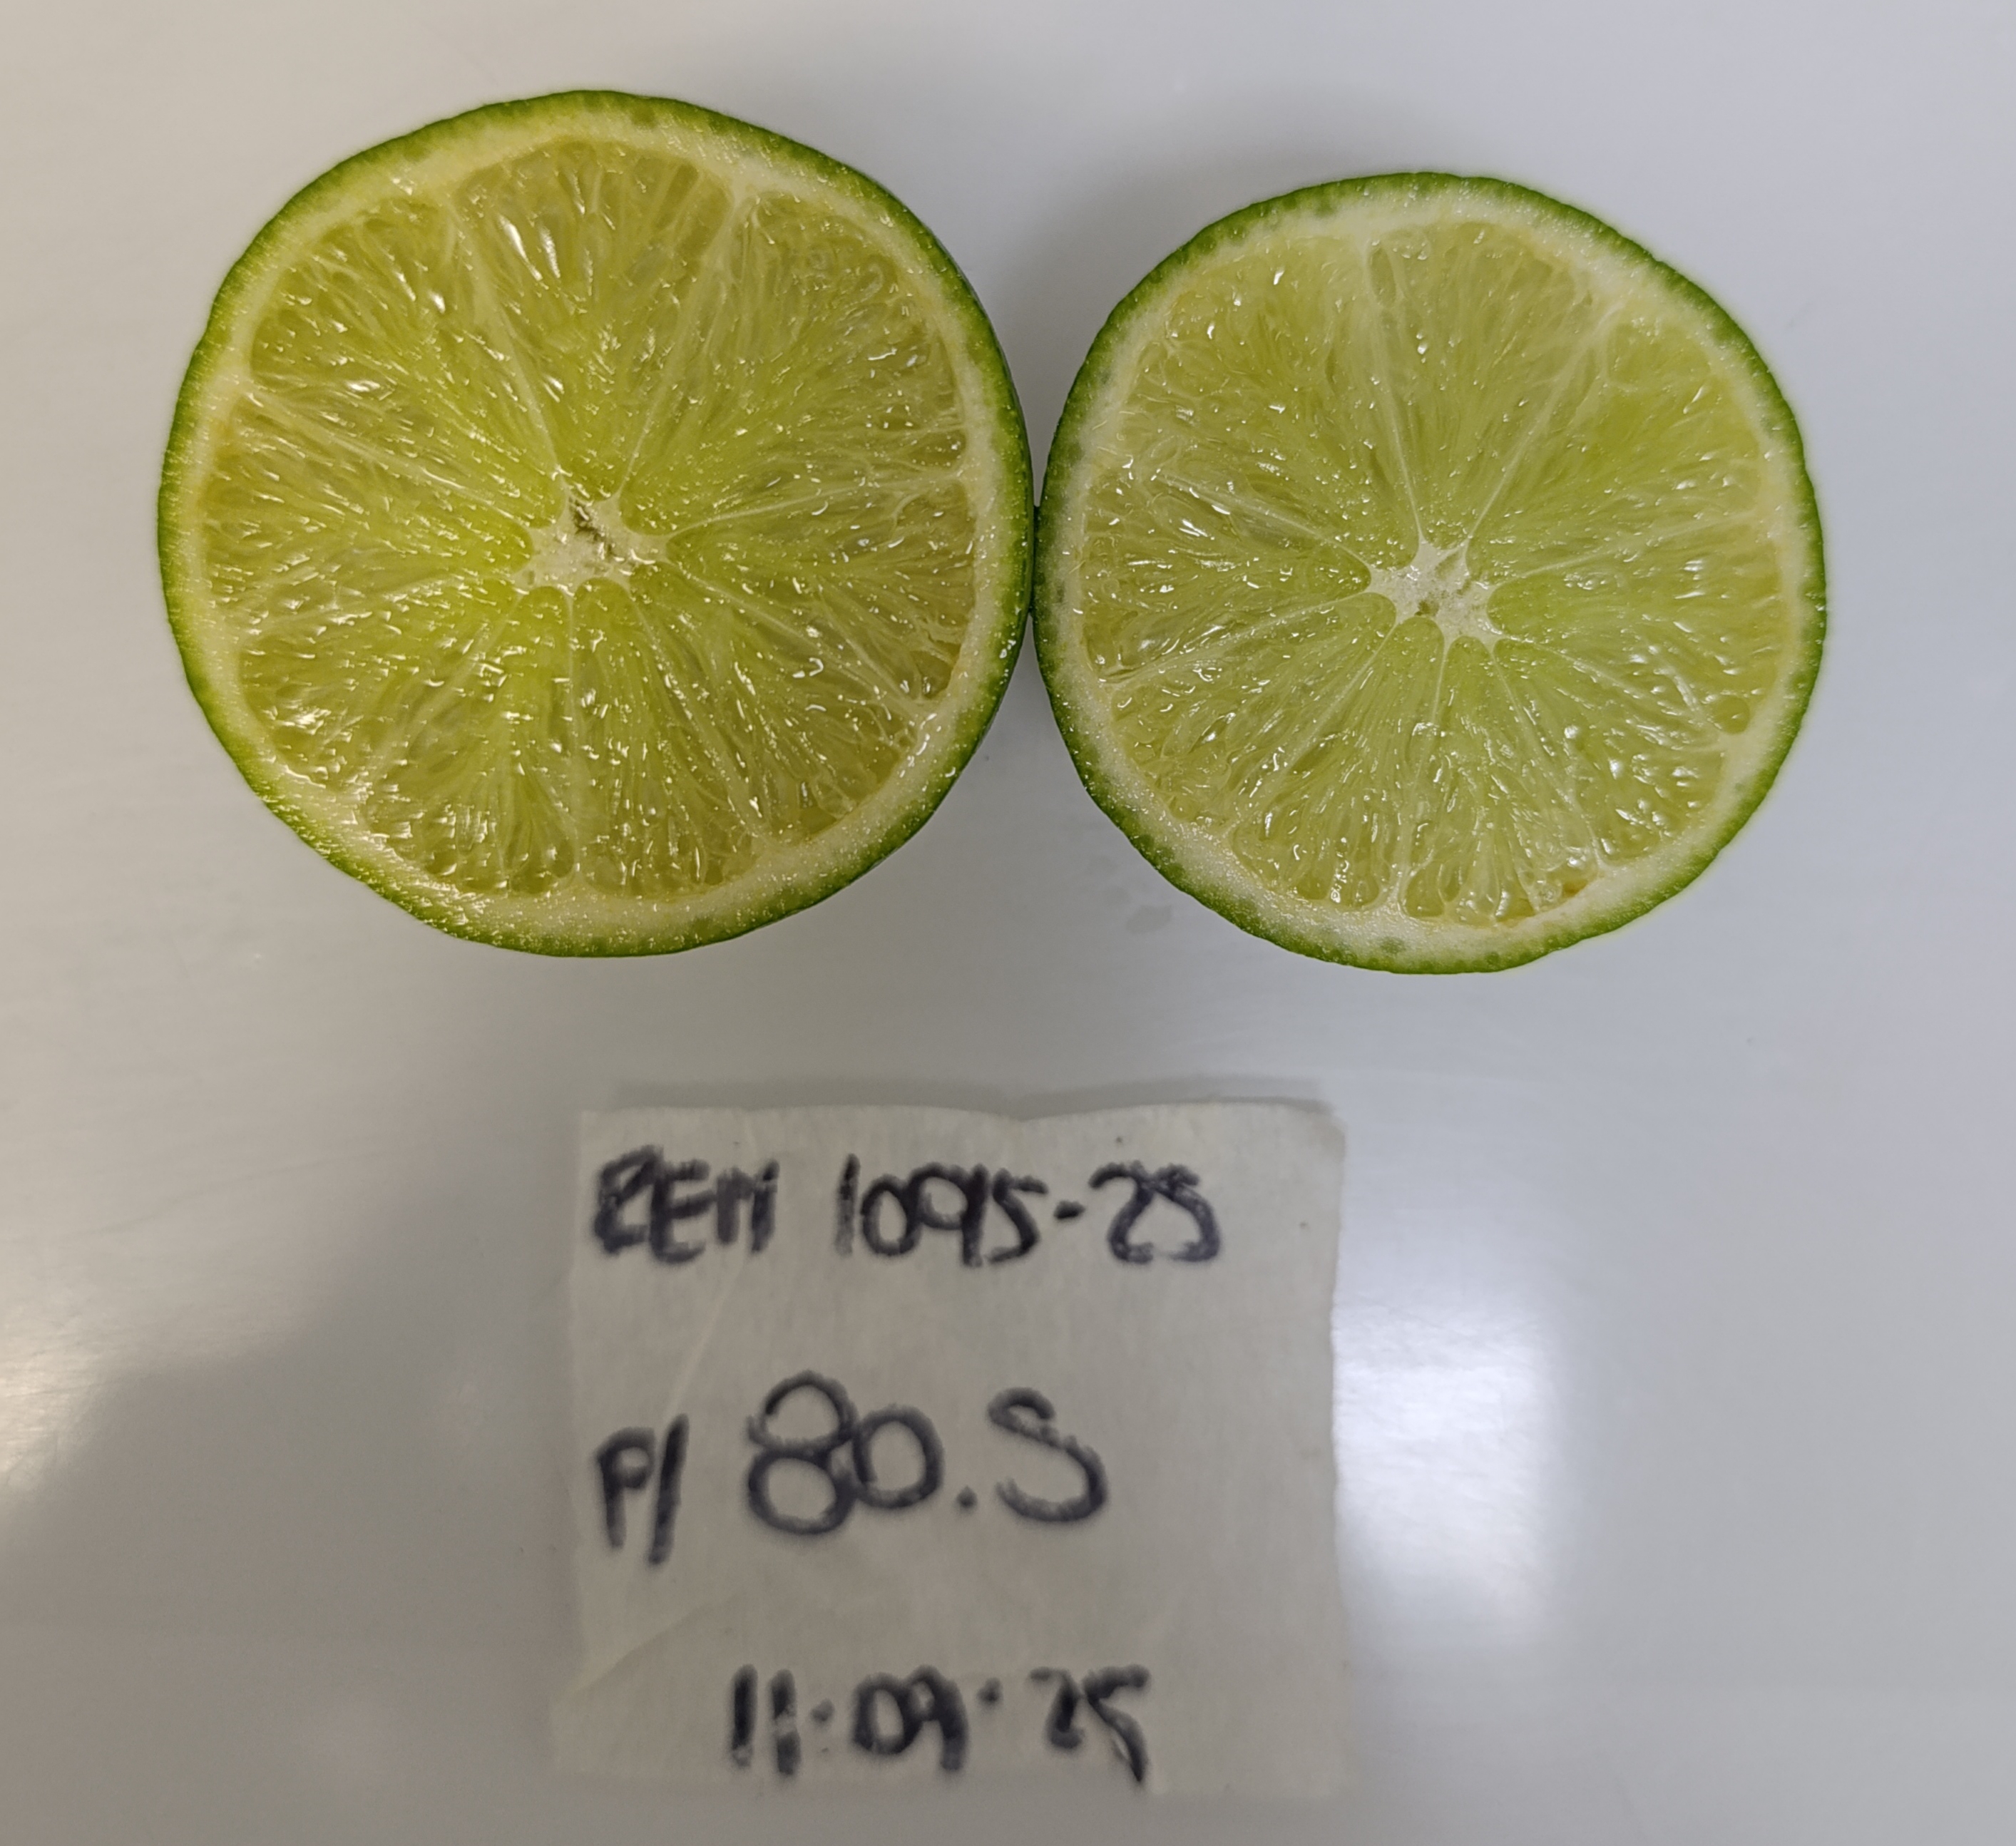 REM 1095-25
P/ 80.5
11.09.25